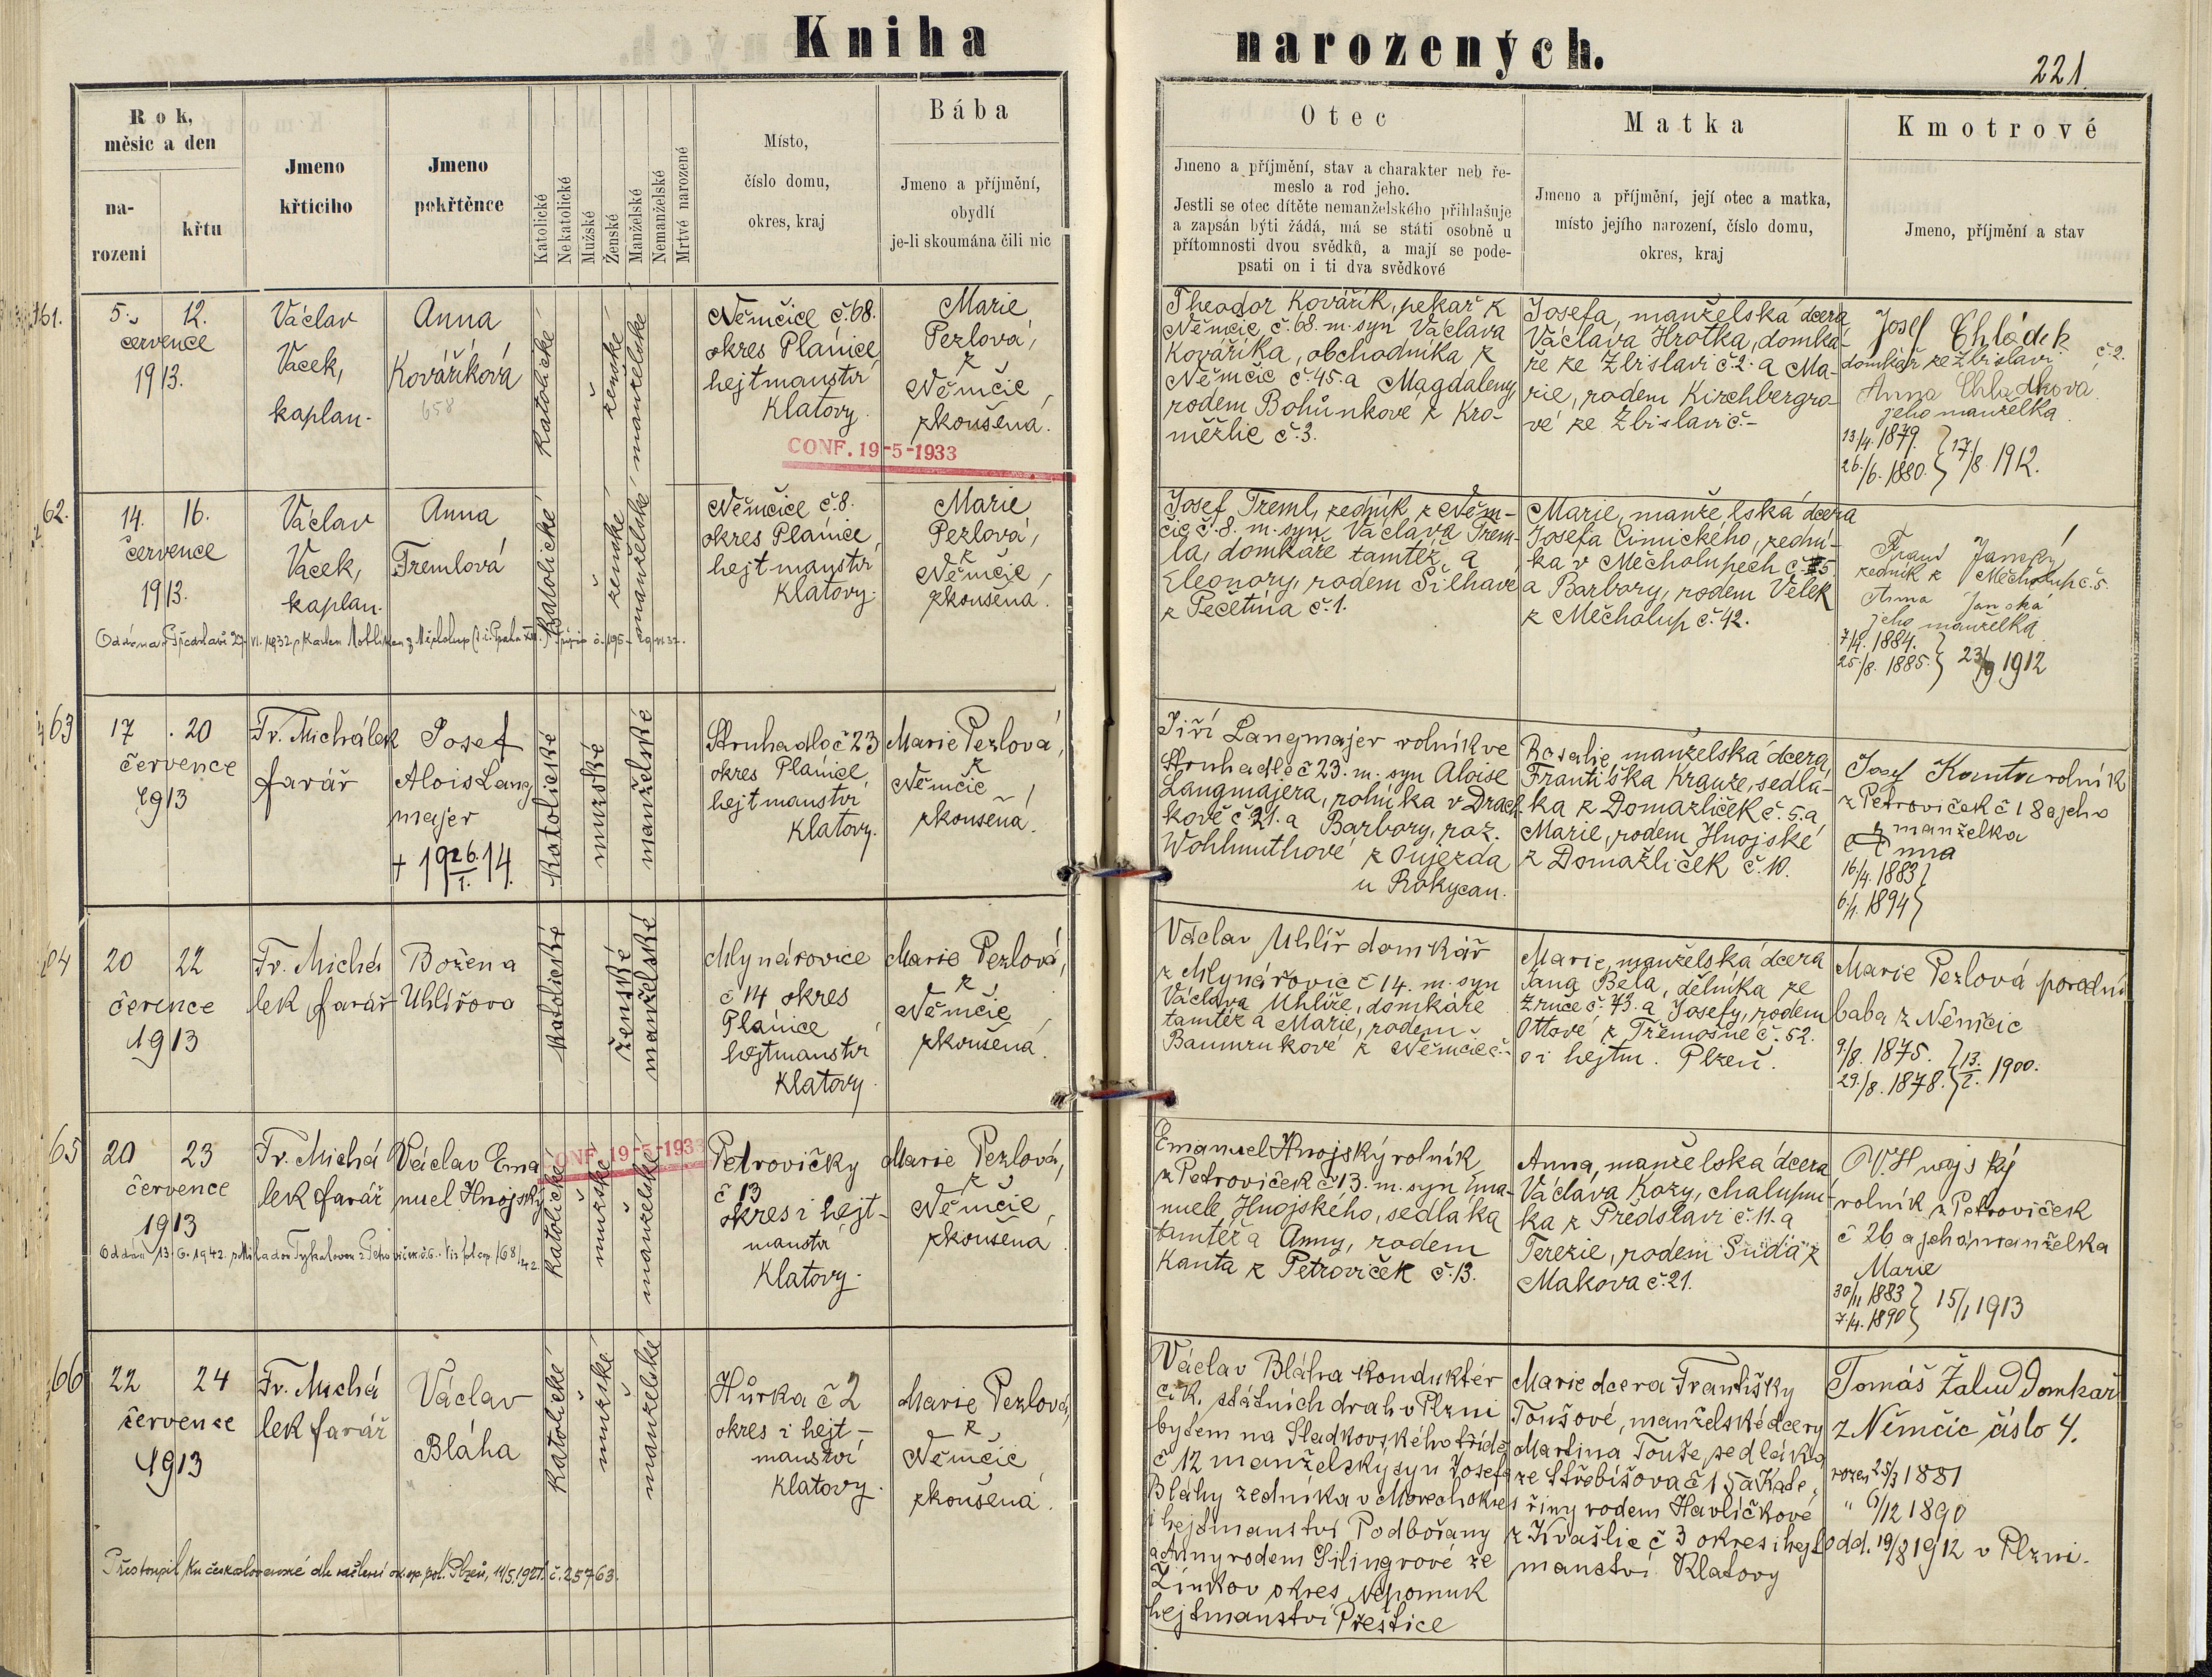 Kniha narozených.
221.
Rok,
měsíc a den
na-
rození
křtu
Jmeno
křticího
Jmeno
pokřtěnce
Katolické
Nekatolické
Mužské
Ženské
Manželské
Nemanželské
Mrtvé narozené
Místo,
číslo domu,
okres, kraj
Bába
Jmeno a příjmění,
obydlí
je-li skoumána čili nic
Otec
Jmeno a příjmění, stav a charakter neb ře-
meslo a rod jeho.
Jestli se otec dítěte nemanželského přihlašuje
a zapsán býti žádá, má se státi osobně u
přítomnosti dvou svědků, a mají se pode-
psati on i ti dva svědkové
Matka
Jmeno a příjmění, její otec a matka,
místo jejího narození, číslo domu,
okres, kraj
Kmotrové
Jmeno, příjmění a stav
61.
5. 12.
července
1913.
Václav
Vacek,
kaplan.
Anna
Kováříková
658
Katolické
ženské
manželské
Němčice č. 68.
okres Plánice,
hejtmanství
Klatovy.
CONF. 19-5-1933
Marie
Pezlová,
z
Němčic,
zkoušená.
Theodor Kovářík, pekař z
Němčic, č. 68. m. syn Václava
Kováříka, obchodníka z
Němčic č. 45. a Magdaleny,
rodem Bohůnkové z Kro-
měžlic č. 3.
Josefa, manželská dcera
Václava Hrotka, domká-
ře ze Zbislavi č. 2. a Ma-
rie, rodem Kirchbergro-
vé ze Zbislavi č. -
Josef Chládek
domkář ze Zbislavi č. 2.
Anna Chládková
jeho manželka
13./4. 1879.
26./6. 1880. } 17./8. 1912.
62.
14. 16.
července
1913.
Václav
Vacek,
kaplan.
Anna
Tremlová
Katolické
ženské
manželské
Němčice č. 8.
okres Plánice,
hejtmanství
Klatovy.
Marie
Pezlová,
z
Němčic,
zkoušená.
Oddána v Předslavi 27. VI. 1932 s Karlem
Josef Treml, zedník z Něm-
čic č. 8. m. syn Václava Trem-
la, domkáře tamtéž, a
Eleonory, rodem Šilhavé
z Pečetína č. 1.
Marie, manželská dcera
Josefa Cinuckého, zední-
ka v Měcholupech č. 5.
a Barbory, rodem Velek
z Měcholup č. 42.
Janský
zedník z Měcholup č. 5.
Anna Janská
jeho manželka
7./4. 1884.
25./8. 1885. } 23/9 1912
63
17 . 20
července
1913
Fr. Michálek
farář
Josef
Alois Lang
majer
+ 19 26./1. 14.
Katolické
mužské
manželské
Struhadlo č 23
okres Plánice,
hejtmanství
Klatovy.
Marie Pezlová,
z
Němčic,
zkoušená.
Jiří Langmajer rolník ve
Struhadle č 23. m. syn Aloise
Langmajera, rolníka v Drach-
kově č 21. a Barbory, roz.
Wohlmuthové z Oujezda
u Rokycan.
Rosalie, manželská dcera
Františka Krauze, sedlá-
ka z Domažliček č. 5. a
Marie, rodem Hnojské
z Domažliček č. 10.
Josef Kanta rolník
z Petroviček č 18 a jeho
manželka
Anna
16/4. 1883
6/1. 1894
64
20 22
čerence
1913
Fr. Michá
lek farář
Božena
Uhlířova
Katolické
ženské
manželské
Mlynářovice
č 14 okres
Plánice
hejtmanství
Klatovy.
Marie Pezlová,
z
Němčic,
zkoušená.
Václav Uhlíř domkář
z Mlynářovic č 14. m. syn
Václava Uhlíře, domkáře
tamtéž a Marie, rodem
Baumrukové z Němčic č. -
Marie, manželská dcera
Jana Běla, dělníka ze
Zruče č. 73. a Josefy, rodem
Ottové z Třemošné č. 52.
o i hejtm. Plzeň.
Marie Pezlová porodní
baba z Němčic
9./8. 1875.
29./8. 1878. } 13./2. 1900.
65
20 23
července
1913
Fr. Michá
lek farář
Václav Ema
nuel Hnojský
CONF. 19-5-1933
Katolické
mužské
manželské
Petrovičky
č 13
okres i hejt-
manství
Klatovy.
Marie Pezlová,
z
Němčic,
zkoušená
Oddán 13. 6. 1942. s Miladou Tykalovou z Petroviček č. 6.
Emanuel Hnojský rolník
z Petroviček č 13. m. syn Ema-
nuele Hnojského, sedláka
tamtéž a Anny, rodem
Kanta z Petroviček č. 13.
Anna, manželská dcera
Václava Kozy, chalupní-
ka z Předslavi č. 11. a
Terezie, rodem Suda z
Makova č. 21.
V. Hnojský
rolník z Petroviček
č 26 a jeho manželka
Marie
30/11 1883
7./4. 1890 } 15/1 1913
66
22 24
července
1913
Fr. Michá
lek farář
Václav
Bláha
Katolické
mužské
manželské
Hůrka č 2
okres i hejt-
manství
Klatovy.
Marie Pezlová,
z
Němčic,
zkoušená.
Přestoupil ku československé dle sdělení ok. sp. pol. Plzeň, 11/5. 1921. č. 25763.
Václav Bláha konduktér
c. k. státních drah v Plzni
bytem na Sladkovského třídě
č 12 manželský syn Josefa
Bláhy zedníka v Morech okres
i hejtmanství Podbořany
a Anny rodem Silingrové ze
Žinkov okres Nepomuk
hejtmanství Přeštice
Marie dcera Františky
Toušové, manželské dcery
Martina Touše sedláka
ze Střebišova č 15 a Kate-
řiny rodem Havlíčkové
z Kvašlic č 3 okres i hejt
manství Klatovy
Tomáš Žalud Domkař
z Němčic číslo 4.
rozen 25/3 1881
" 6/12 1890
odd. 19/8 1912 v Plzni.